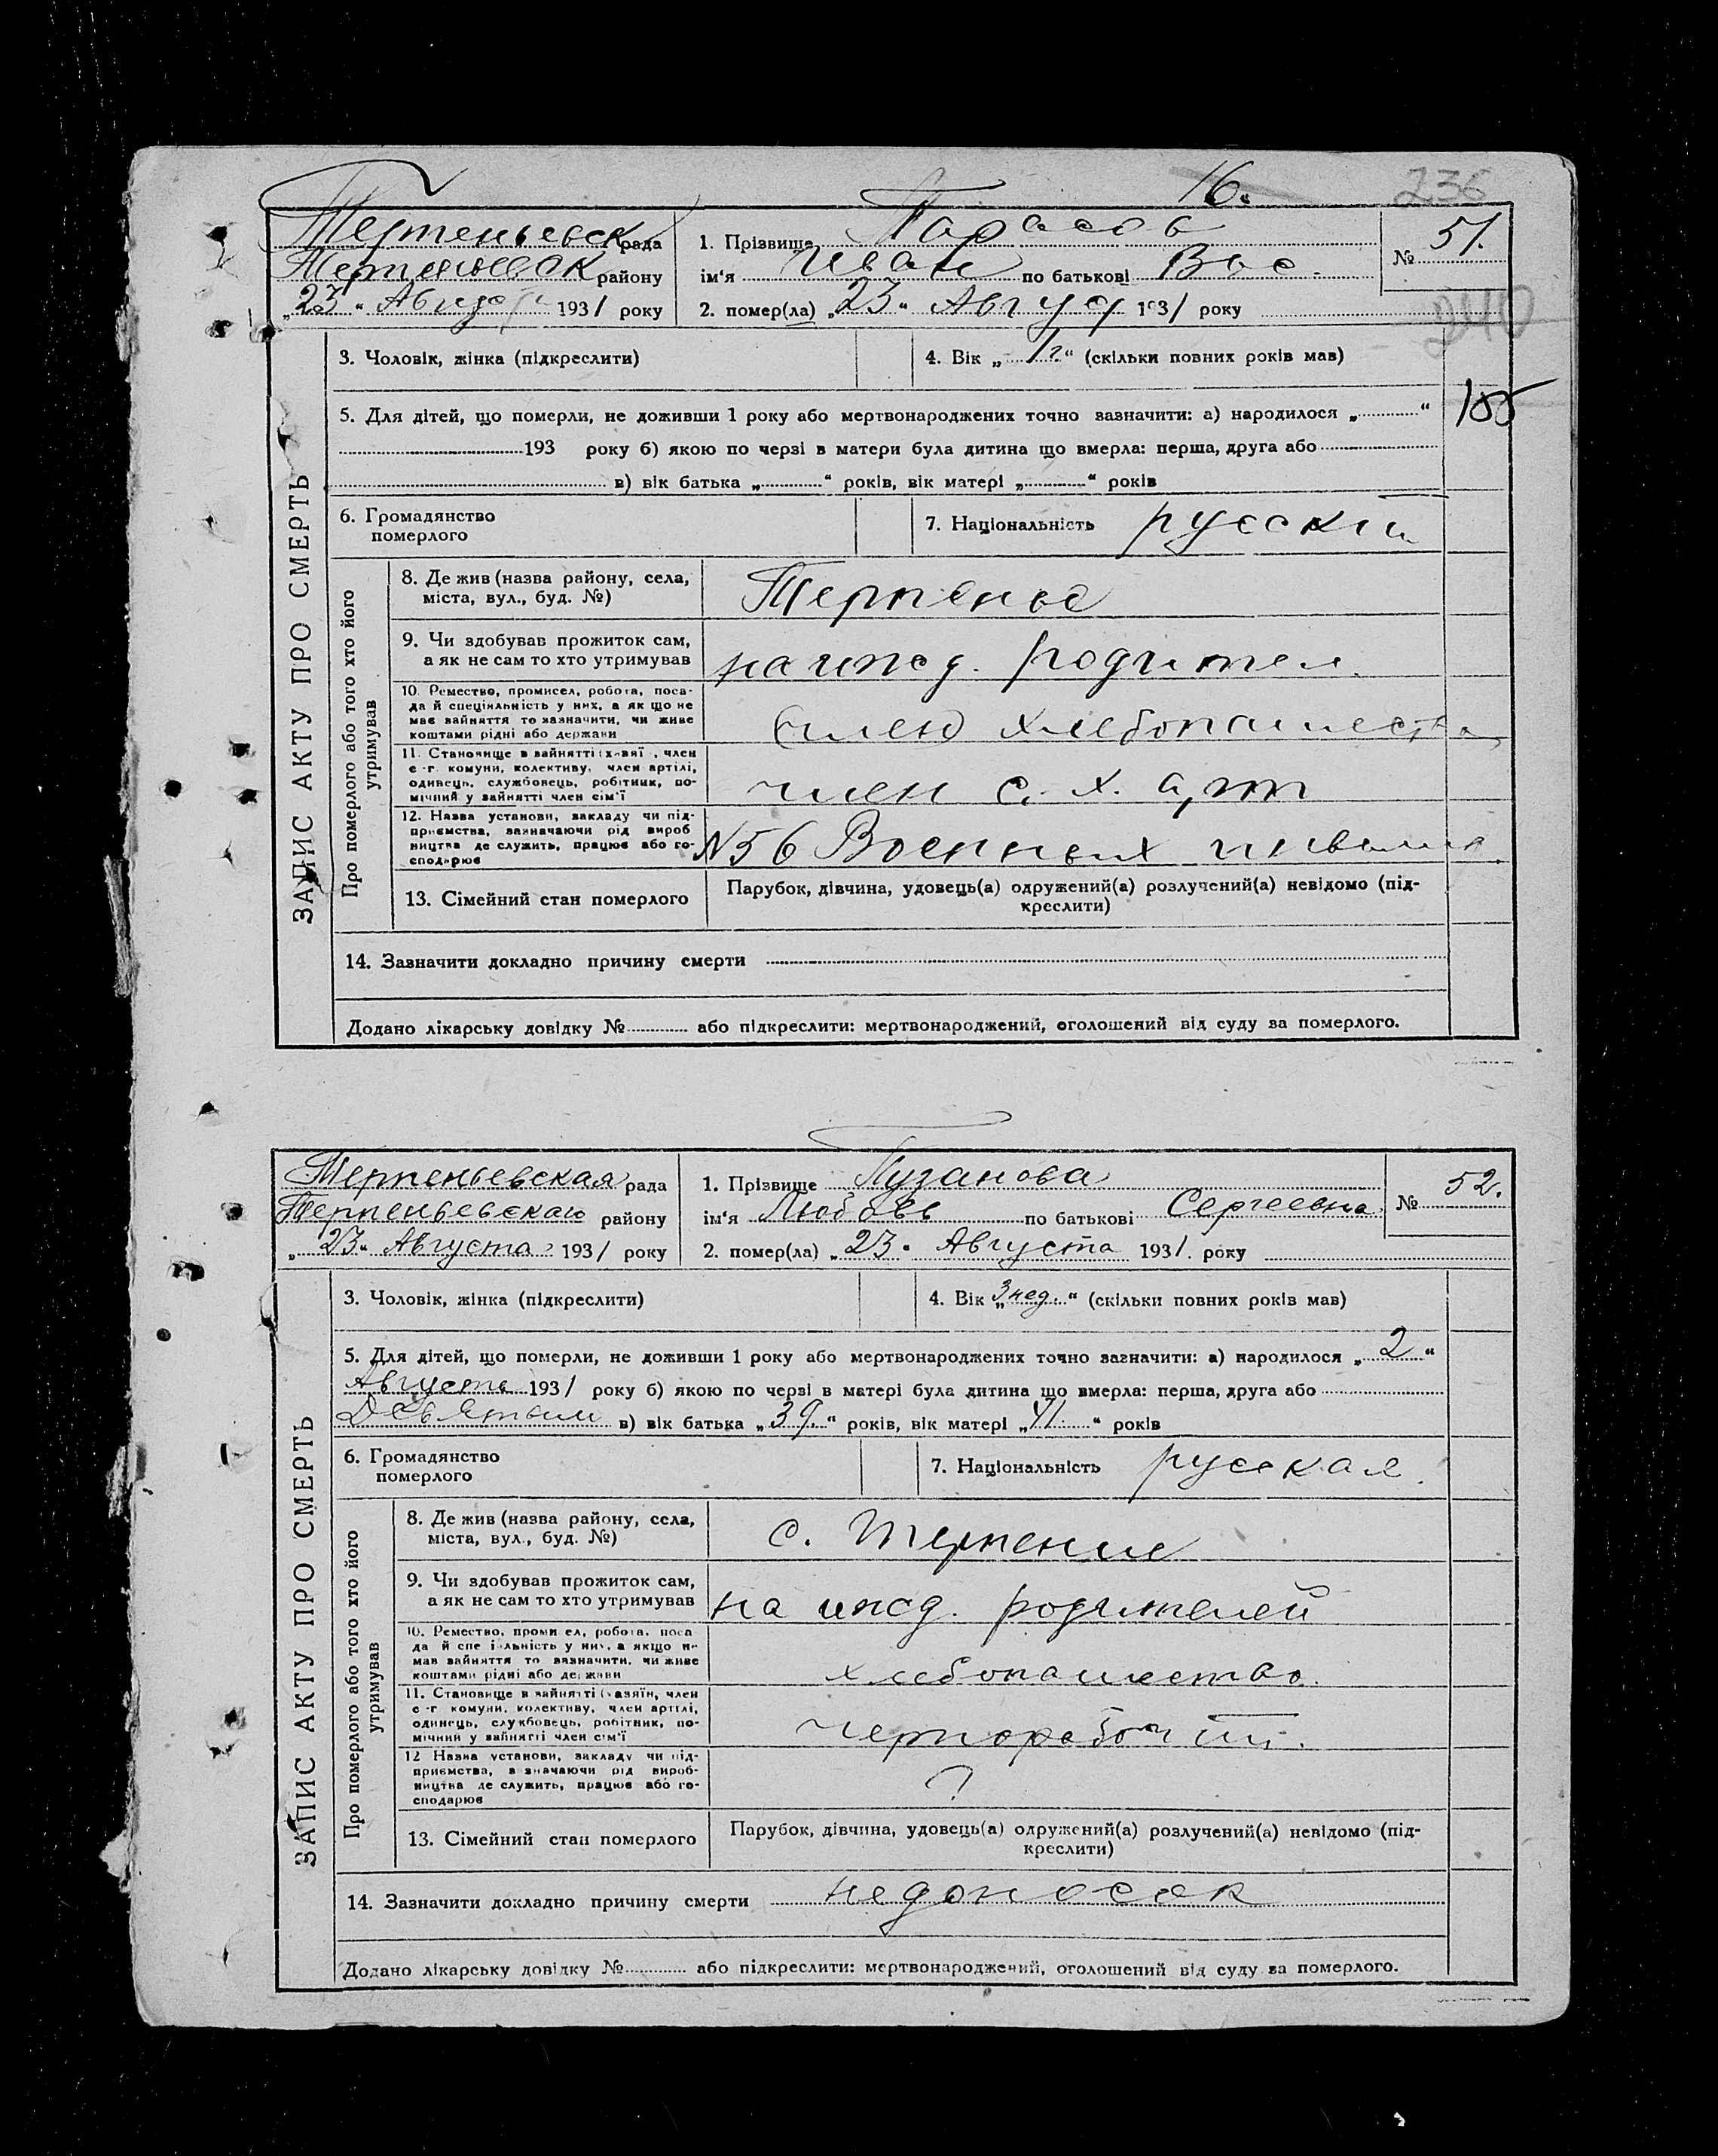 16.
236
Терпеньевск рада
1. Прізвище Тарасов
№ 51.
Терпеньевск району
ім'я Иван по батькові Вас.
„23" Август 1931 року
2. помер(ла) „23" Август 1931 року
240
3. Чоловік, жінка (підкреслити)
4. Вік „1 г." (скільки повних років мав)
155
5. Для дітей, що померли, не доживши 1 року або мертвонароджених точно зазначити: а) народилося „ "
193 року б) якою по черзі в матери була дитина що вмерла: перша, друга або
в) вік батька „ " років, вік матері „ " років
6. Громадянство
померлого
7. Національність русский
ЗАПИС АКТУ ПРО СМЕРТЬ
Про померлого або того хто його
утримував
8. Де жив (назва району, села,
міста, вул., буд. №)
Терпенье
9. Чи здобував прожиток сам,
а як не сам то хто утримував
на ижд. родител.
10. Ремество, промисел, робота, поса-
да й спеціяльність у них, а як що не
має зайняття то зазначити, чи живе
коштами рідні або держави
хлебопашества
11. Становище в зайнятті (хазяї, член
с-г. комуни, колективу, член артілі,
одинець, службовець, робітник, по-
мічний у зайнятті член сім'ї
член с. х. арт
12. Назва установи, закладу чи під-
приємства, зазначаючи рід вироб
ництва де служить, працює або го-
сподарює
№56 Военных инвалид.
13. Сімейний стан померлого
Парубок, дівчина, удовець(а) одружений(а) розлучений(а) невідомо (під-
креслити)
14. Зазначити докладно причину смерти
Додано лікарську довідку № або підкреслити: мертвонароджений, оголошений від суду за померлого.
Терпеньевская рада
1. Прізвище Пузанова
№ 52.
Терпеньевскаго району
ім'я Любовь по батькові Сергеевна
„23" Августа 1931 року
2. помер(ла) „23" Августа 1931. року
3. Чоловік, жінка (підкреслити)
4. Вік „3 нед." (скільки повних років мав)
5. Для дітей, що померли, не доживши 1 року або мертвонароджених точно зазначити: а) народилося „2"
Августа 1931 року б) якою по черзі в матері була дитина що вмерла: перша, друга або
Девятым в) вік батька „39." років, вік матері „41." років
6. Громадянство
померлого
7. Національність русская.
ЗАПИС АКТУ ПРО СМЕРТЬ
Про померлого або того хто його
утримував
8. Де жив (назва району, села,
міста, вул., буд. №)
с. Терпение
9. Чи здобував прожиток сам,
а як не сам то хто утримував
на ижд. родителей
10. Ремество, промисел, робота, поса
да й спеціальність у них, а якщо не
має зайняття то зазначити, чи живе
коштами рідні або держави
хлебопашество.
11. Становище в зайнятті (хазяїн, член
с-г комуни, колективу, член артілі,
одинець, службовець, робітник, по-
мічний у зайнятті член сім'ї
чернорабочий.
12 Назва установи, закладу чи під-
приємства, зазначаючи рід вироб-
ництва де служить, працює або го-
сподарює
?
13. Сімейний стан померлого
Парубок, дівчина, удовець(а) одружений(а) розлучений(а) невідомо (під-
креслити)
14. Зазначити докладно причину смерти недоносок
Додано лікарську довідку № або підкреслити: мертвонароджений, оголошений від суду за померлого.